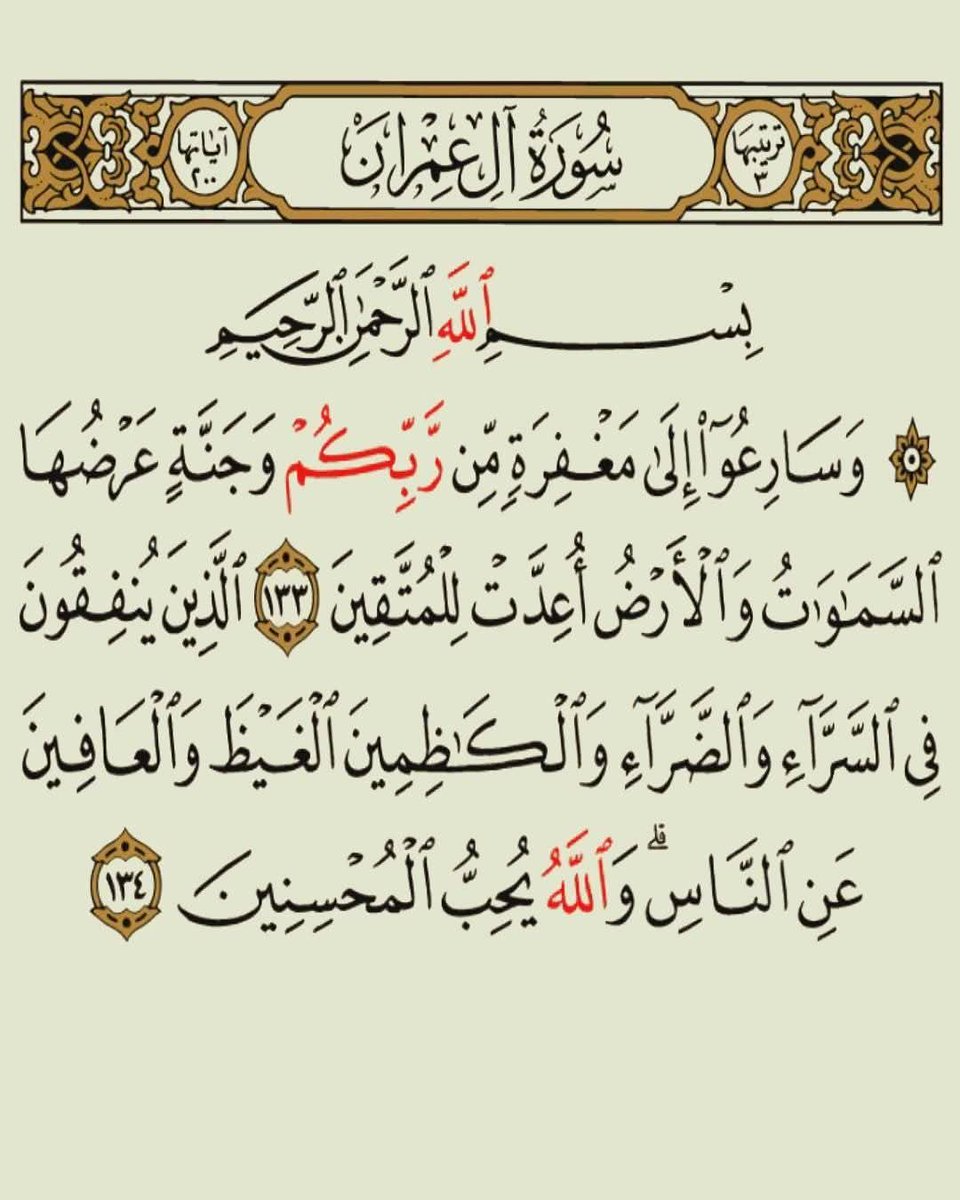 ترتيبها ٣ سُورَةُ آلِ عِمْرَانَ آيَاتها ٢٠٠
بِسْمِ ٱللَّهِ ٱلرَّحْمَٰنِ ٱلرَّحِيمِ
۞ وَسَارِعُوٓا۟ إِلَىٰ مَغْفِرَةٍ مِّن رَّبِّكُمْ وَجَنَّةٍ عَرْضُهَا
ٱلسَّمَٰوَٰتُ وَٱلْأَرْضُ أُعِدَّتْ لِلْمُتَّقِينَ ١٣٣ ٱلَّذِينَ يُنفِقُونَ
فِى ٱلسَّرَّآءِ وَٱلضَّرَّآءِ وَٱلْكَٰظِمِينَ ٱلْغَيْظَ وَٱلْعَافِينَ
عَنِ ٱلنَّاسِ ۗ وَٱللَّهُ يُحِبُّ ٱلْمُحْسِنِينَ ١٣٤